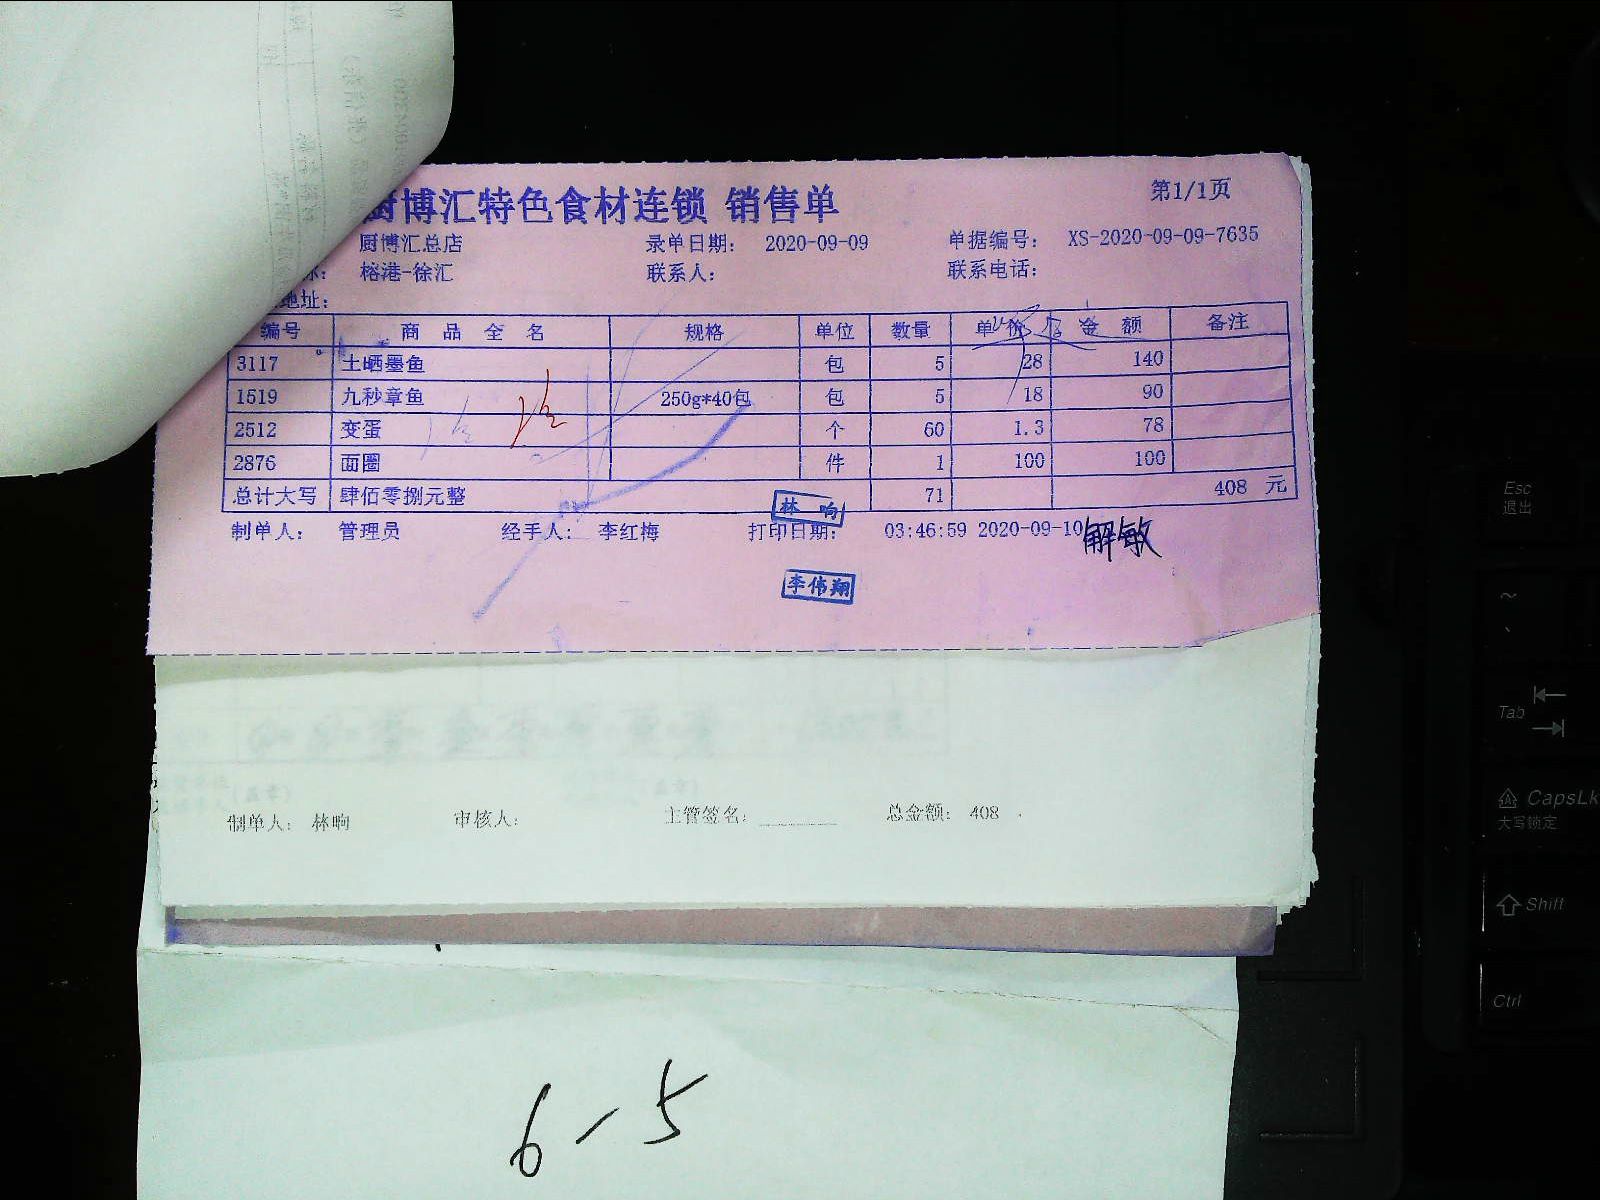 厨博汇特色食材连锁 销售单 第1/1页
厨博汇总店 录单日期: 2020-09-09 单据编号: XS-2020-09-09-7635
称: 榕港-徐汇 联系人: 联系电话:
地址:
编号 商品全名 规格 单位 数量 单价 金额 备注
3117 土晒墨鱼 包 5 28 140
1519 九秒章鱼 250g*40包 包 5 18 90
2512 变蛋 个 60 1.3 78
2876 面圈 件 1 100 100
总计大写 肆佰零捌元整 71 408 元
林响
制单人: 管理员 经手人: 李红梅 打印日期: 03:46:59 2020-09-10 解敏
李伟翔
制单人: 林响 审核人: 主管签名: 总金额: 408
6-5
Esc
退出
~
Tab
CapsLk
大写锁定
Shift
Ctrl